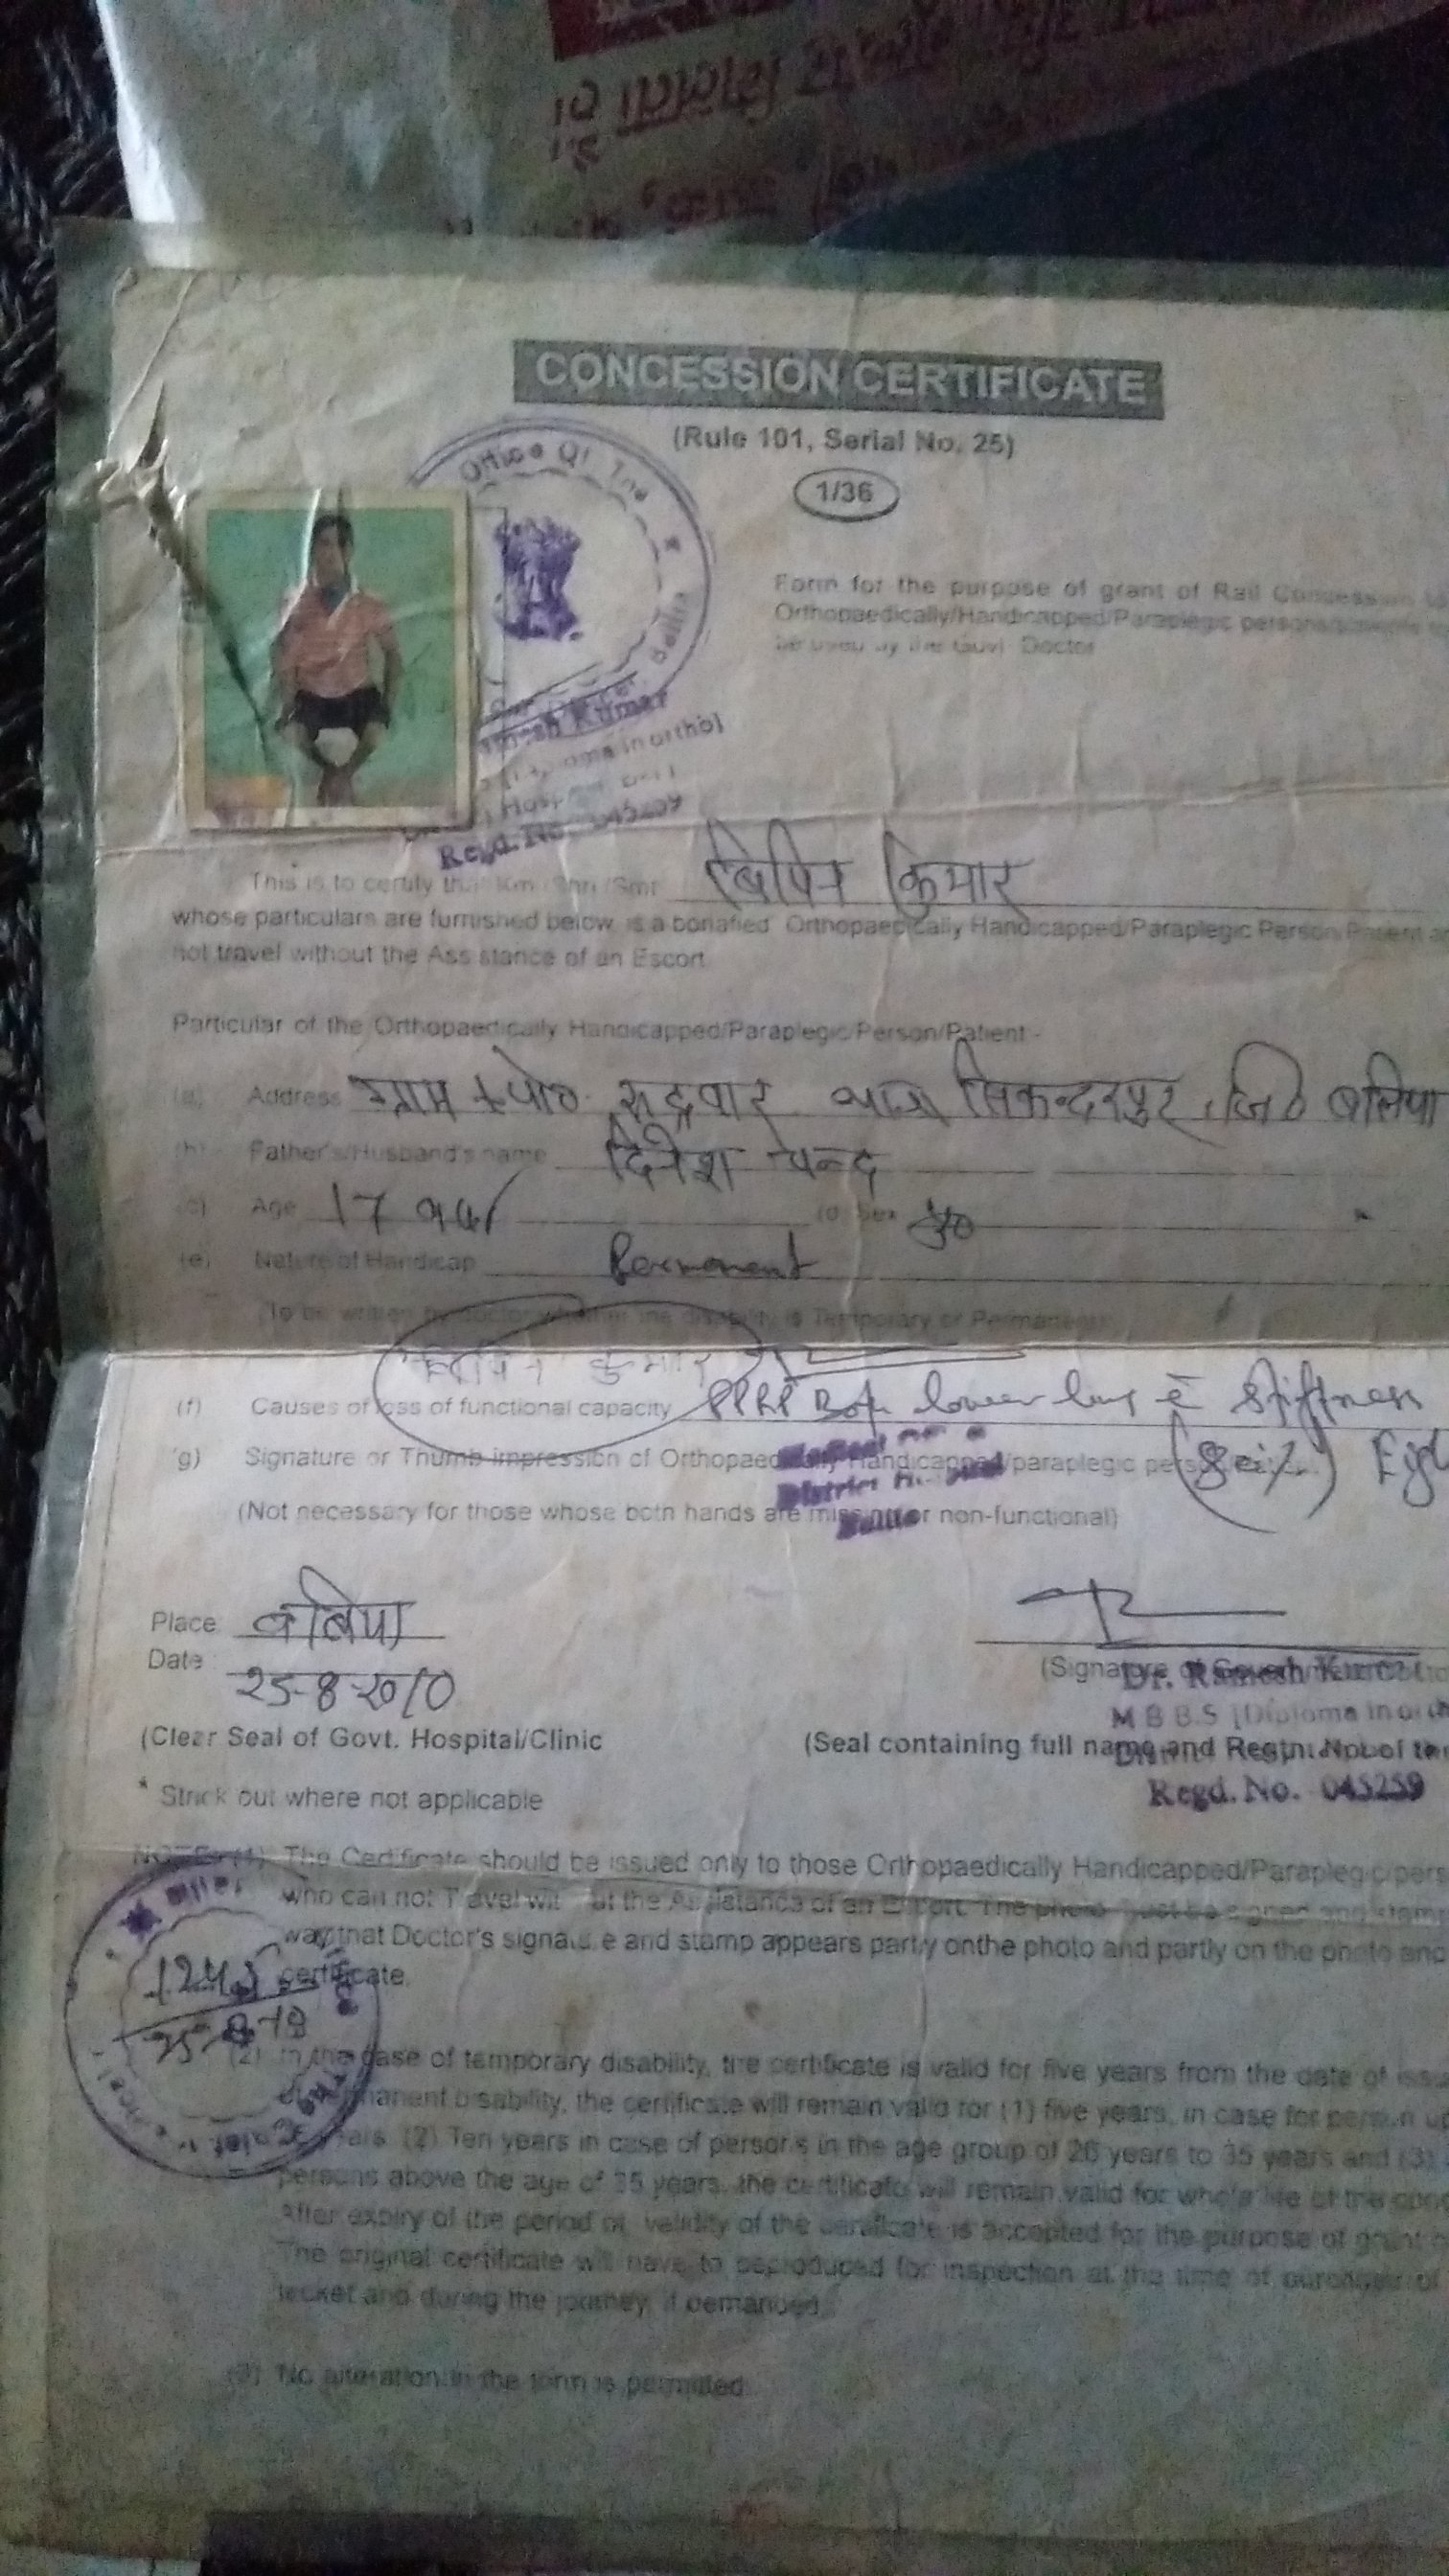 CONCESSION CERTIFICATE
(Rule 101, Serial No. 25)
1/36
Office Of The
Ballia
Form for the purpose of grant of Rail Concession
Orthopaedically/Handicapped/Paraplegic persons
be used by the Govt Doctor
Kumar
in ortho)
Regd. No. 045259
This is to certify that Km /Shri /Smt बिपिन कुमार
whose particulars are furnished below, is a bonafied Orthopaedically Handicapped/Paraplegic Person/Patient
not travel without the Assistance of an Escort
Particular of the Orthopaedically Handicapped/Paraplegic/Person/Patient -
(a) Address ग्राम + पो० रुद्रवार सिकन्दरपुर, जि० बलिया
(b) Father's/Husband's name दिनेश चन्द
(c) Age 17 वर्ष (d) Sex पु०
(e) Nature of Handicap Permanent
(To be written by doctor whether the disability is Temporary or Permanent)
बिपिन कुमार
(f) Causes of loss of functional capacity PPRP Both lower limb c̄ stiffness
(g) Signature or Thumb impression of Orthopaedically Handicapped/paraplegic
(80%)
District
Ballia
(Not necessary for those whose both hands are missing or non-functional)
Place बलिया
Date : 25-8-2010
(Signature of
Dr. Ramesh Kumar
M B B.S [Diploma in orth
(Clear Seal of Govt. Hospital/Clinic
(Seal containing full name and Regtn. No. of the
Regd. No. 045259
* Strick out where not applicable
NOTES (1) The Certificate should be issued only to those Orthopaedically Handicapped/Paraplegic/pers
who can not Travel without the Assistance of an Escort. The photo must be signed and stamp
way that Doctor's signature and stamp appears partly onthe photo and partly on the photo and
certificate.
(2) In the case of temporary disability, the certificate is valid for five years from the date of issu
permanent disability, the certificate will remain valid for (1) five years, in case for person up
years (2) Ten years in case of persons in the age group of 26 years to 35 years and (3)
persons above the age of 35 years, the certificate will remain valid for whole life of the
After expiry of the period of validity of the certificate is accepted for the purpose of grant
The original certificate will have to be produced for inspection at the time of purchase of
ticket and during the journey, if demanded.
(3) No alteration in the form is permitted.